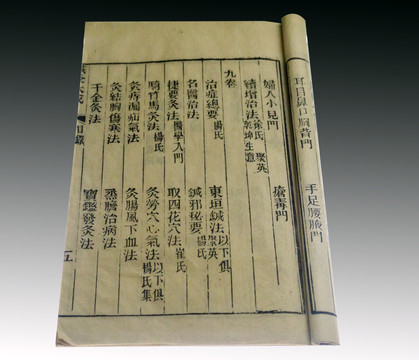 耳目鼻口胸背門 手足腰腋門
婦人小兒門 瘡毒門
續增治法 徐氏 聚英 乾坤生意
九卷
治症總要 楊氏 東垣鍼法 以下俱聚英
名醫治法 鍼邪秘要 楊氏
捷要灸法 醫學入門 取四花穴法 崔氏
騎竹馬灸法 楊氏 灸勞穴心氣法 以下俱楊氏集
灸痔漏疝氣法 灸腸風下血法
灸結胸傷寒法 蒸臍治病法
千金灸法 寶鑑發灸法
大成 目錄 五